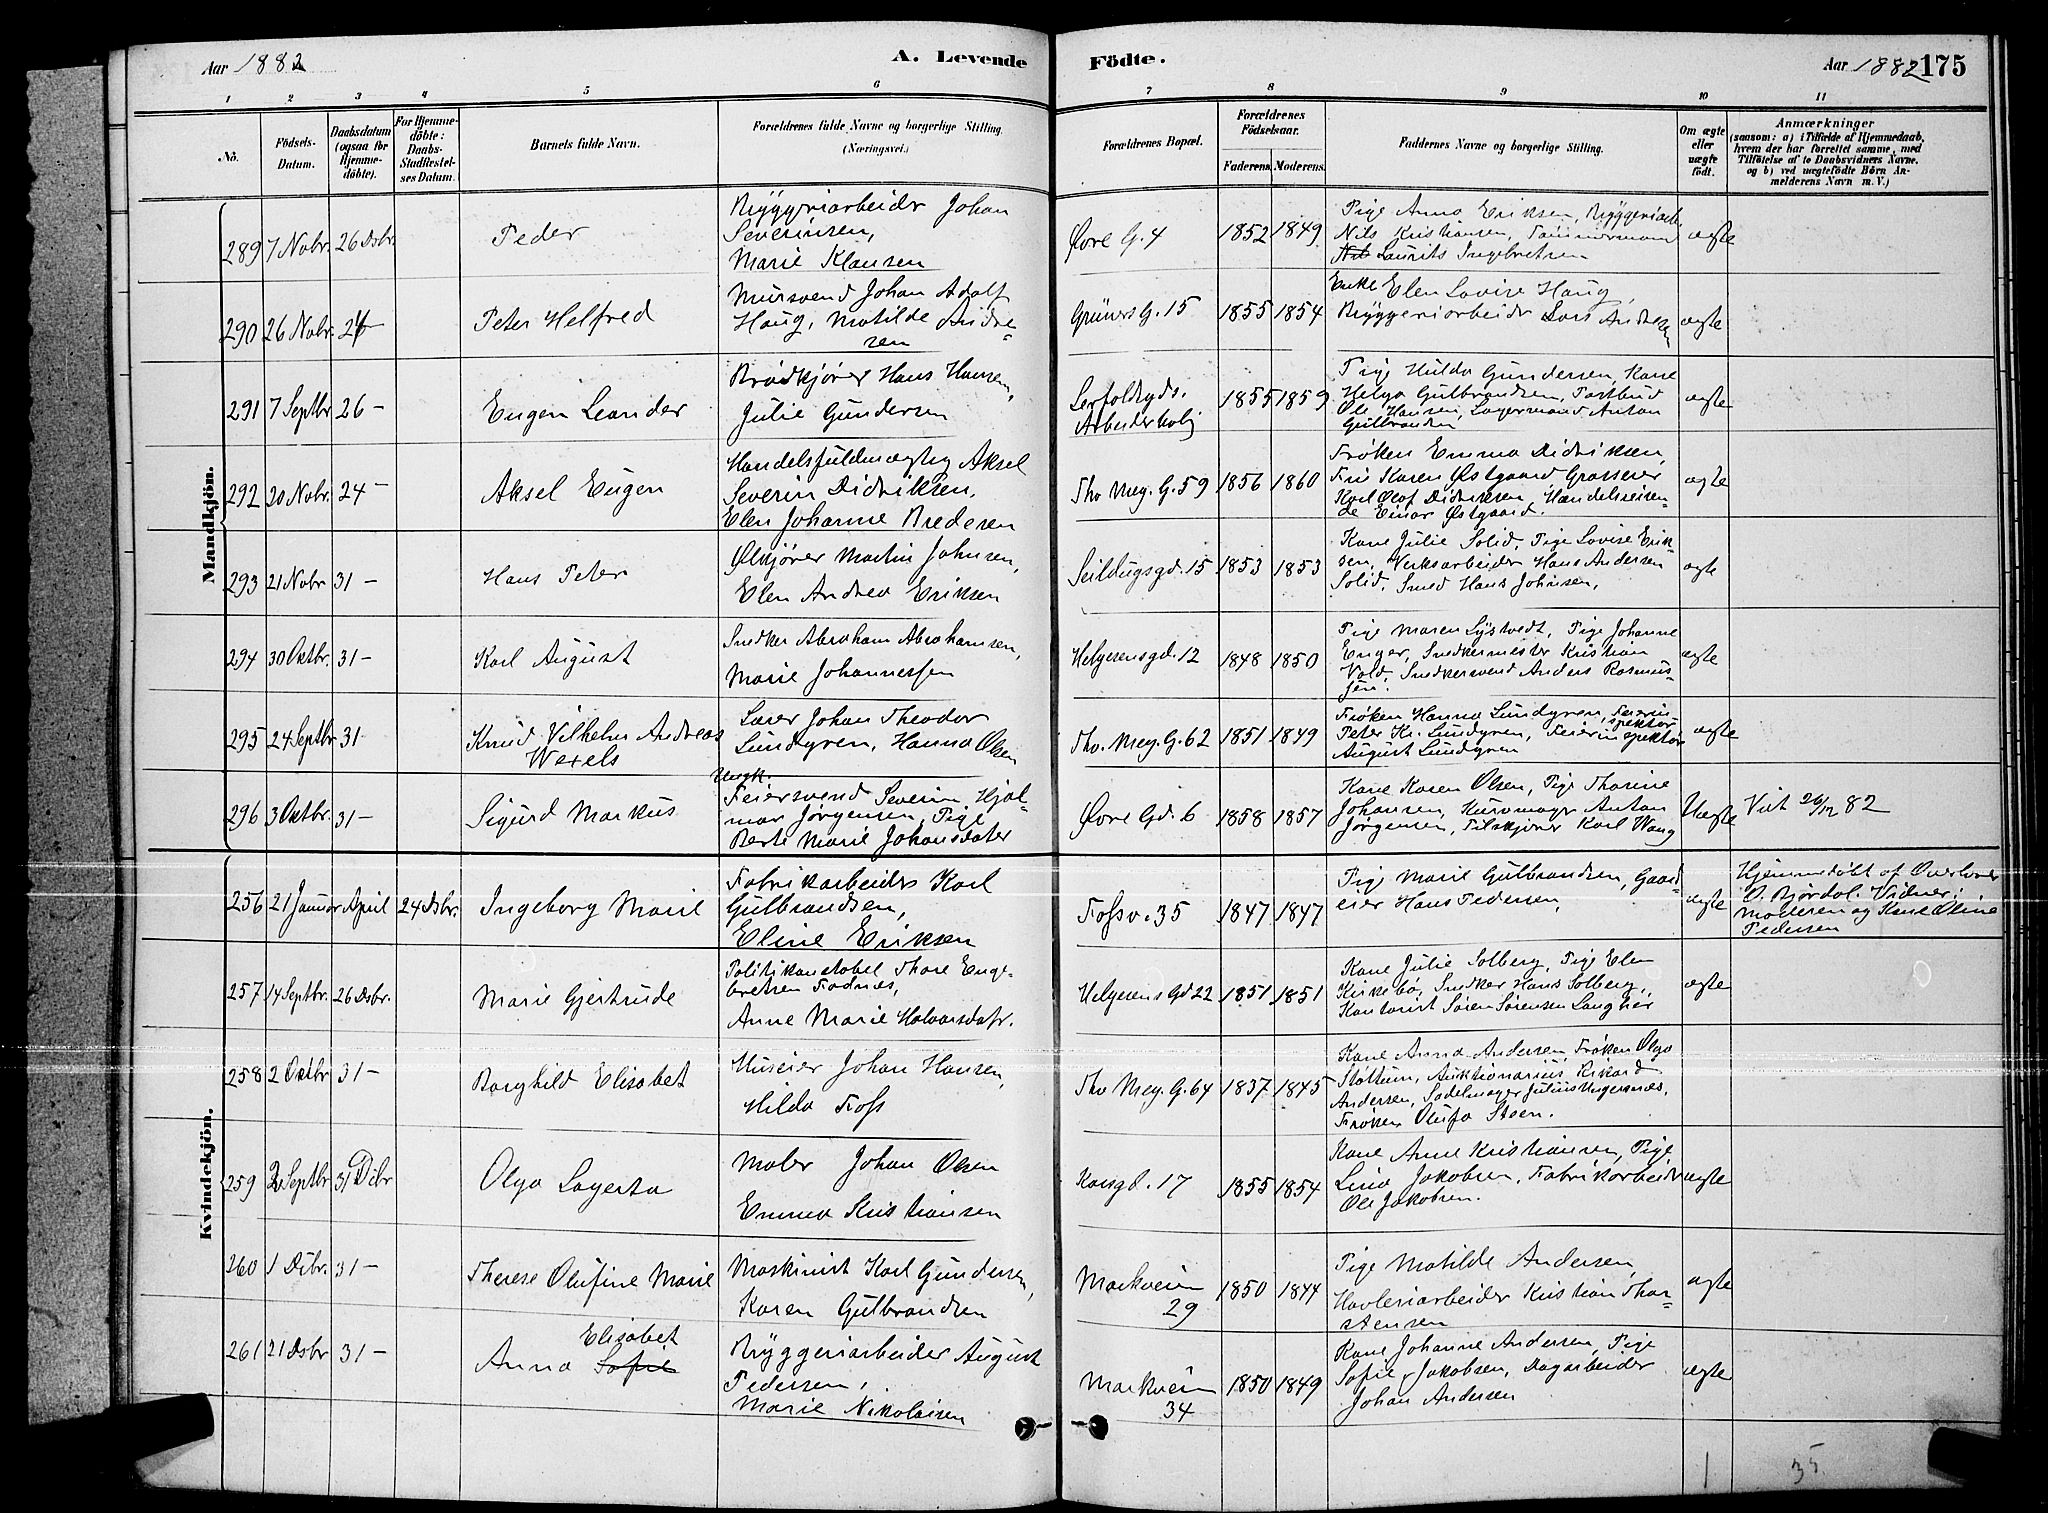 Aar 1882
A. Levende
Födte.
Aar 1882 175
1 2 3 4 5 6 7 8 9 10 11
No.
Födsels-Datum.
Daabsdatum (ogsaa for Hjemme-döbte).
For Hjemme-döbte: Daabs-Stadfæstel-ses Datum.
Barnets fulde Navn.
Forældrenes fulde Navne og borgerlige Stilling.
(Næringsvei.)
Forældrenes Bopæl.
Forældrenes Födselsaar.
Faderens. Moderens.
Faddernes Navne og borgerlige Stilling.
Om ægte eller uægte födt.
Anmærkninger
(saasom: a) i Tilfælde af Hjemmedaab,
hvem der har forrettet samme, med
Tilföielse af to Daabsvidners Navne.
og b) ved uægtefödte Börn An-
melderens Navn m. V.)
Mandkjön.
289 7 Nobr. 26 Dsbr. Peder
Bryggeriarbeider Johan
Severinsen,
Marie Klausen
Øvre G. 4 1852 1849
Tige Anna Eriksen, Bryggeriarb.
Nils Kristiansen, Tømmermand
Laurits Ingebretsen
ægte
290 26 Nobr. 26 Peter Helfred
Mursvend Johan Adolf
Haug, Matilde Andre-
sen
Grüners G. 15 1855 1854
Enke Elen Lovise Haug,
Bryggeriarbeider Lars Andresen
ægte
291 7 Septbr 26 – Eugen Leander
Brødkjører Hans Hansen,
Julie Gundersen
Arbeiderbolig 1855 1859
Pige Hulda Gundersen, Kone
Helga Gulbrandsen, Postbud
Ole Hansen, Lagermand Anton
Gulbrandsen
ægte
292 20 Nobr. 24 – Aksel Eugen
Handelsfuldmægtig Aksel
Severin Didriksen,
Elen Johanne Bredesen
Thv Mey. G. 59 1856 1860
Frøken Emma Didriksen,
Frue Karen Østgaard, Grosserer
Karl Olaf Didriksen, Handelsreisen-
de Einar Østgaard.
ægte
293 21 Nobr 31 – Hans Peter
Ølkjører Martin Johnsen,
Elen Andrea Eriksen
Seildugsgd. 15 1853 1853
Kone Julie Solid, Pige Lovise Erik-
sen, Verksarbeider Hans Andersen
Solid, Smed Hans Johnsen,
ægte
294 30 Oktbr. 31 – Karl August
Snedker Abraham Abrahamsen,
Marie Johannessen
Helgesensgd. 12 1848 1850
Pige Maren Lystvedt, Pige Johanne
Enger, Snedkermester Kristian
Vold, Snedkersvend Anders Rasmus-
sen.
ægte
295 24 Septbr 31 – Knud Vilhelm Andreas
Wexels
Lærer Johan Theodor
Lundgren, Hanna Olsen
Thv. Mey. G. 62 1851 1849
Frøken Hanna Lundgren, Feierin-
spektør
Peter Kr. Lundgren, Feierinspektør
August Lundgren
ægte
296 3 Oktbr. 31 – Sigurd Markus
Ungk.
Feiersvend Severin Hjal-
mar Jørgensen, Pige
Berte Marie Johansdater
Øvre Gd. 6 1858 1857
Kone Karen Olsen, Pige Thorine
Johansen, Kurvmager Anton
Jørgensen, Filskjører Karl Wang
Uægte
Vist 26/12 82
Kvindekjön.
256 21 Januar April 24 Dsbr. Ingeborg Marie
Fabrikarbeider Karl
Gulbrandsen,
Eline Eriksen
Fossv. 35 1847 1847
Pige Marie Gulbrandsen, Gaard-
eier Hans Pedersen,
ægte
Hjemmedøbt af Overlærer
O. Bjørdal. Vidner:
Moderen og Kone Oline
Pedersen
257 14 Septbr. 26 Dsbr. Marie Gjertrude
Politikonstabel Thore Enge-
bretsen Fodnæs,
Anne Marie Halvorsdatr.
Helgesens Gd 22 1851 1851
Kone Julie Solberg, Pige Elen
Kirkebø, Snedker Hans Solberg,
Kontorist Søren Sørensen Langlier
ægte
258 2 Oktbr 31 – Borghild Elisabet
Huseier Johan Hansen,
Hilda Foss
Thv Mey. G. 64 1837 1845
Kone Anna Andersen, Frøken Olga
Støttum, Auktionarius Rikard
Andersen, Sadelmager Julius Ungersnæs,
Frøken Olufa Steen.
259 2 Septbr 31 Dcbr Olga Lagerta
Maler Johan Olsen
Emma Kristiansen
Kongd. 17 1855 1854
Kone Anne Kristiansen, Pige
Lina Jakobsen, Fabrikarbeider
Ole Jakobsen.
ægte
260 1 Dcbr. 31 – Therese Olufine Marie
Maskinist Karl Gundersen,
Karen Gulbrandsen
Markveien
29 1850 1844
Pige Matilde Andersen,
Høvleriarbeider Kristian Thor-
stensen
ægte
261 21 Dsbr 31 – Anna Sofie
Elisabet
Bryggeriarbeider August
Pedersen,
Marie Nikolaisen
Markveien
34 1850 1849
Kone Johanne Andersen, Pige
Sofie Jakobsen, Dagarbeider
Johan Andersen
ægte
1 35